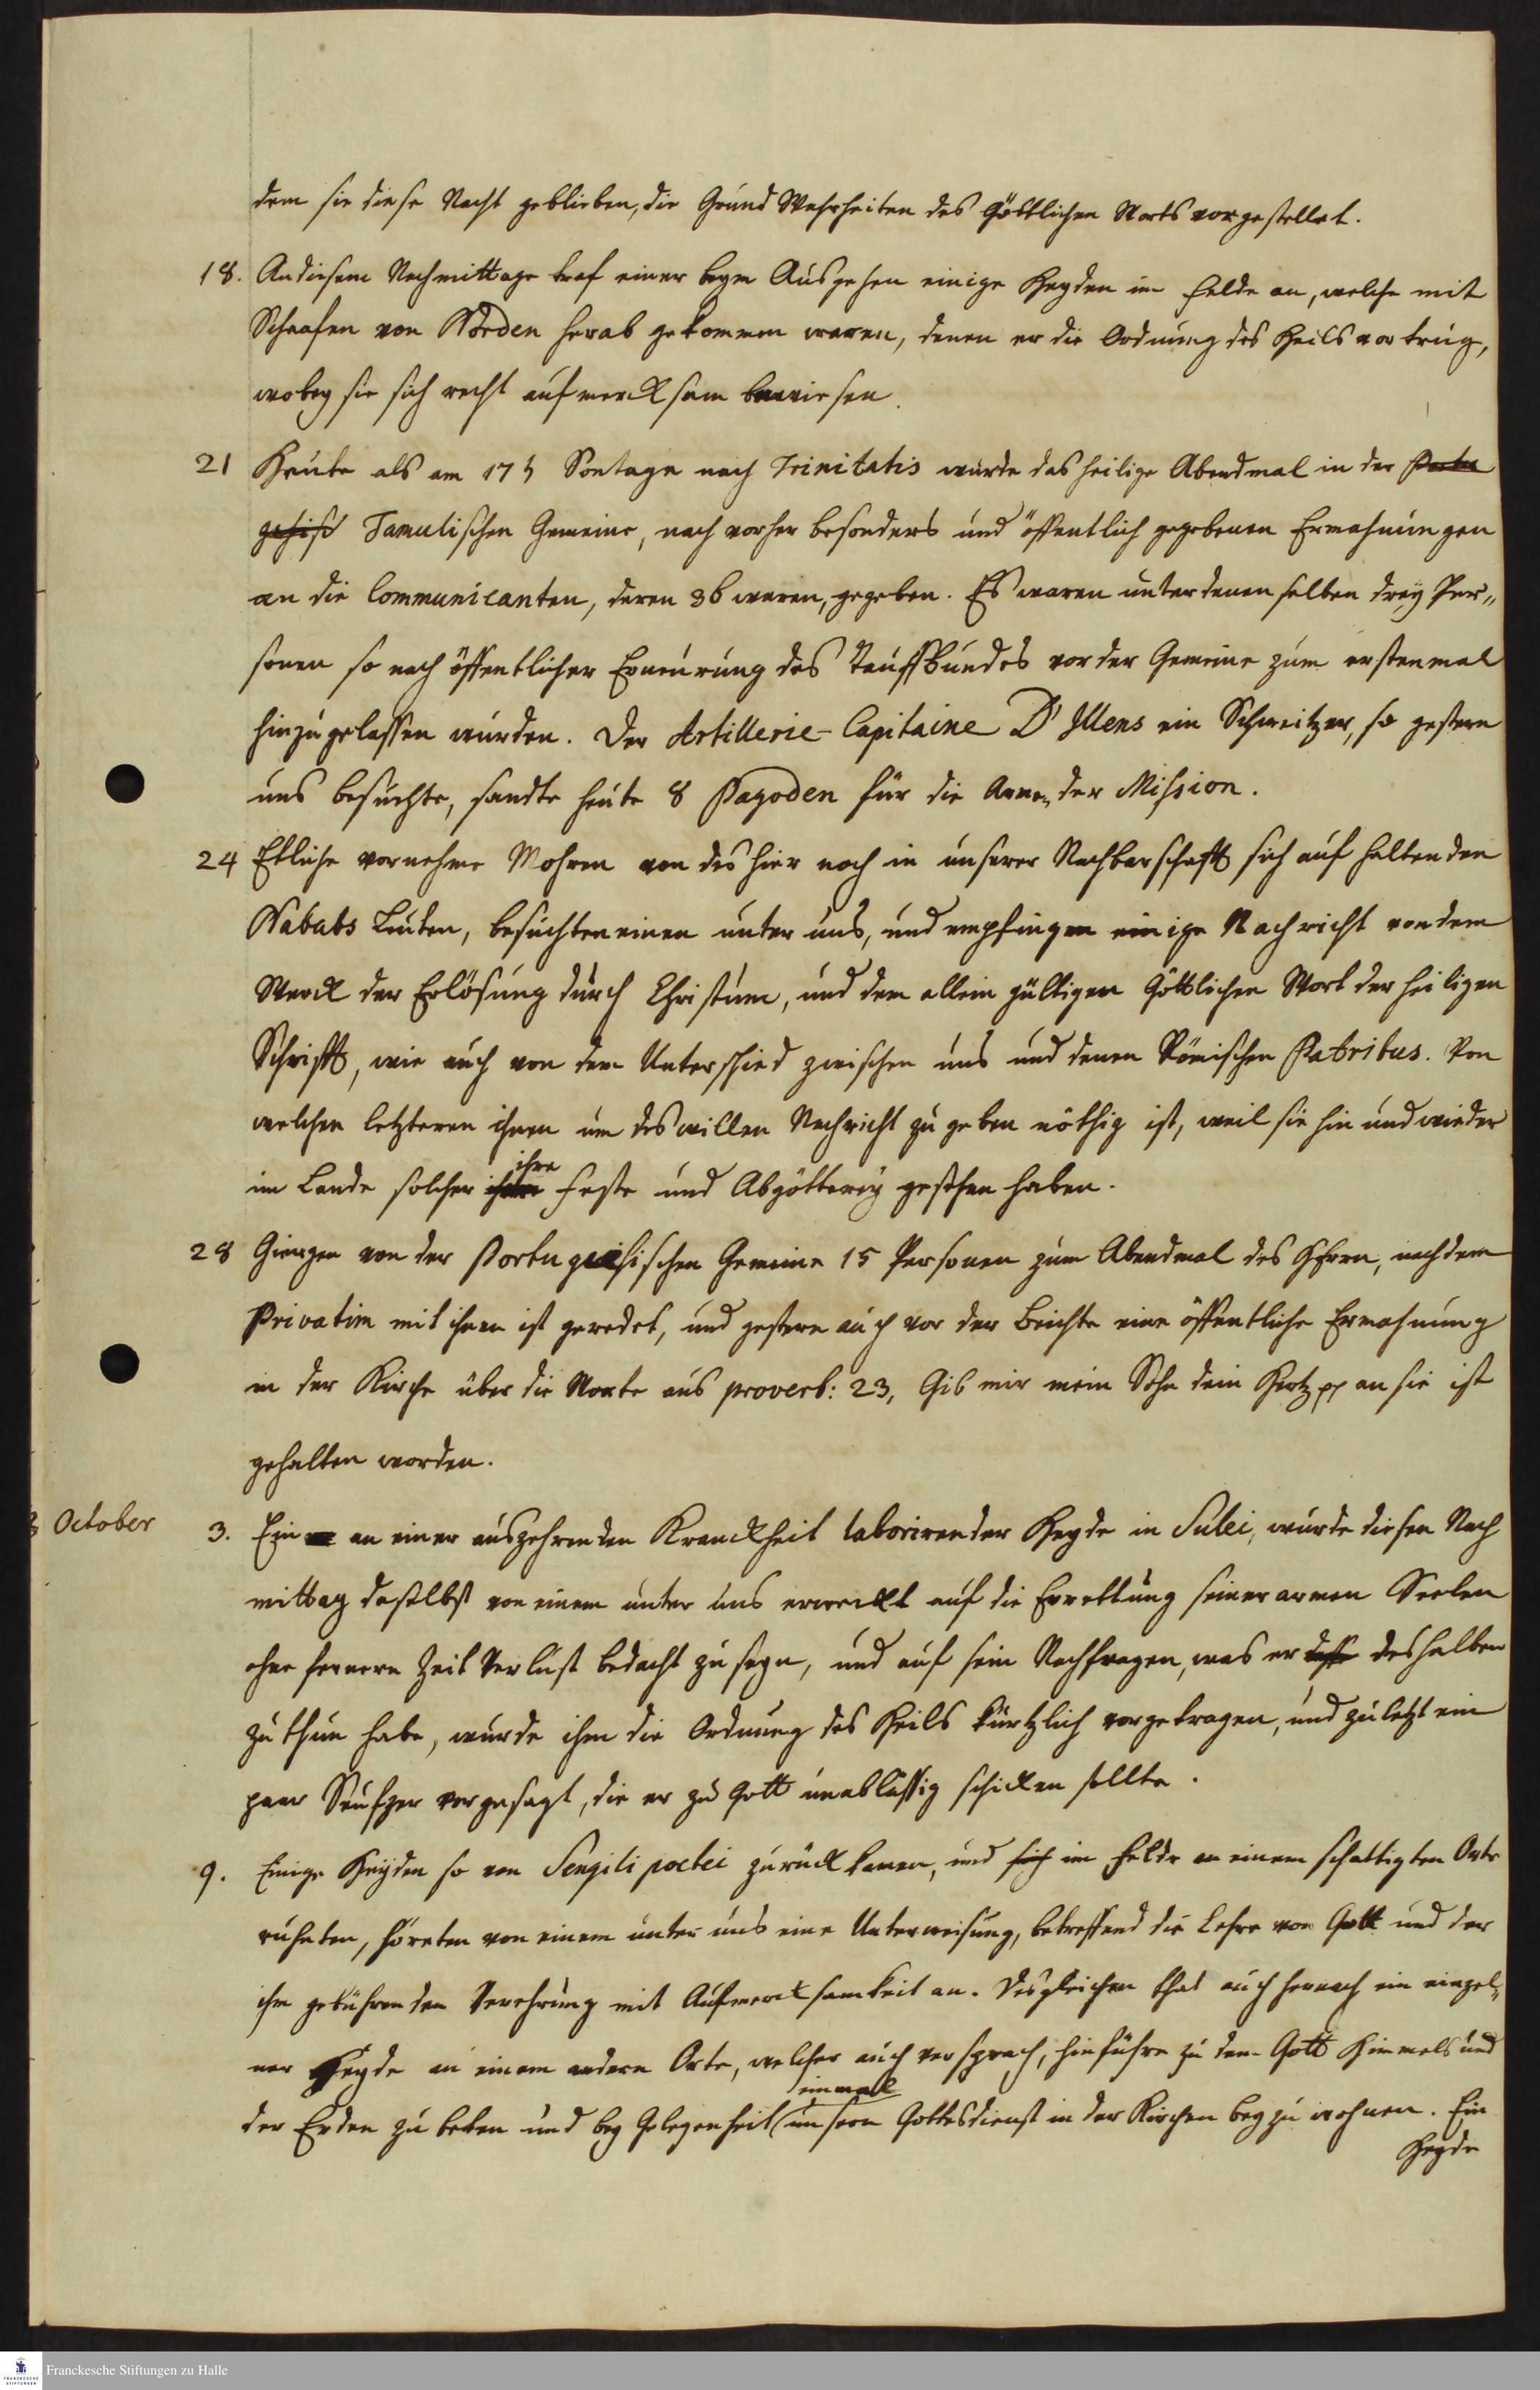 dem sie diese Nacht geblieben, die Grund Wahrheiten des Göttlichen Worts vorgestellet.
18. An diesem Nachmittage traf einer beym Ausgehen einige Heyden im Felde an, welche mit
Schaafen von Norden herab gekommen waren, denen er die Ordnung des Heils vortrug,
wobey sie sich recht aufmercksam bewiesen.
21 Heute als am 17 Sontage nach Trinitatis wurde das heilige Abendmal in der Portu
gesisch Tamulischen Gemeine, nach vorher besonders und öffentlich gegebenen Ermahnungen
an die Communicanten, deren 36 waren, gegeben. Es waren unter denenselben drey Per„
sonen so nach öffentlicher Erneurung des Tauffbundes vor der Gemeine zum erstenmal
hinzugelassen wurden. Der Artillerie-Capitaine D'Illens ein Schweitzer, so gestern
uns besuchte, sandte heute 8 Pagoden für die Armen der Mission.
24 Etliche vornehme Mohren von des hier noch in unserer Nachbarschafft sich aufhaltenden
Nababs Leuten, besuchten einen unter uns, und empfingen einige Nachricht von dem
Werck der Erlösung durch Christum, und dem allein gültigen Göttlichen Wort der heiligen
Schrifft, wie auch von dem Unterschied zwischen uns und denen Römischen Patribus. Von
welchen letzteren ihnen um deswillen Nachricht zu geben nöthig ist, weil sie hin und wieder
ihre
im Lande solcher Feste und Abgötterey gesehen haben.
28 Giengen von der Portugiesischen Gemeine 15 Personen zum Abendmal des HErrn, nachdem
Privatim mit ihnen ist geredet, und gestern auch vor der Beichte eine öffentliche Ermahnung
in der Kirche über die Worte aus proverb: 23, Gib mir mein Sohn dein Hertz pp an sie ist
gehalten worden.
October 3. Ein an einer auszehrenden Kranckheit laborirender Heyde in Sulei, wurde diesen Nach
mittag daselbst von einem unter uns erweckt auf die Errettung seiner armen Seelen
ohne fernern Zeit Verlust bedacht zu seyn, und auf sein Nachfragen, was er deshalben
zu thun habe, wurde ihm die Ordnung des Heils kürtzlich vorgetragen, und zuletzt ein
paar Seufzer vorgesagt, die er zu Gott unablässig schicken sollte.
9. Einige Heyden so von Sengilipoetei zurück kamen, und sich im Felde an einem schattigten Orte
ruheten, höreten von einem unter uns eine Unterweisung, betreffend die Lehre von Gott und der
ihm gebührenden Verehrung mit Aufmercksamkeit an. Desgleichen that auch hernach ein eintzel„
ner Heyde an einem andern Orte, welcher auch versprach, hinführo zu dem Gott Himmels und
einmall
der Erden zu beten und bey Gelegenheit unsern Gottesdienst in der Kirchen beyzuwohnen. Ein
Heyde
Franckesche Stiftungen zu Halle